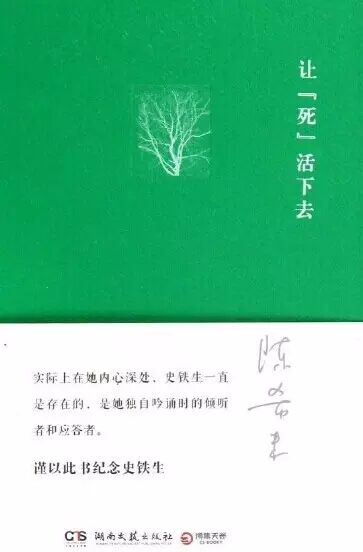 让「死」活下去
陈希米
实际上在她内心深处，史铁生一直
是存在的，是她独自吟诵时的倾听
者和应答者。
谨以此书纪念史铁生
湖南文艺出版社
博集天卷
CS-BOOKY